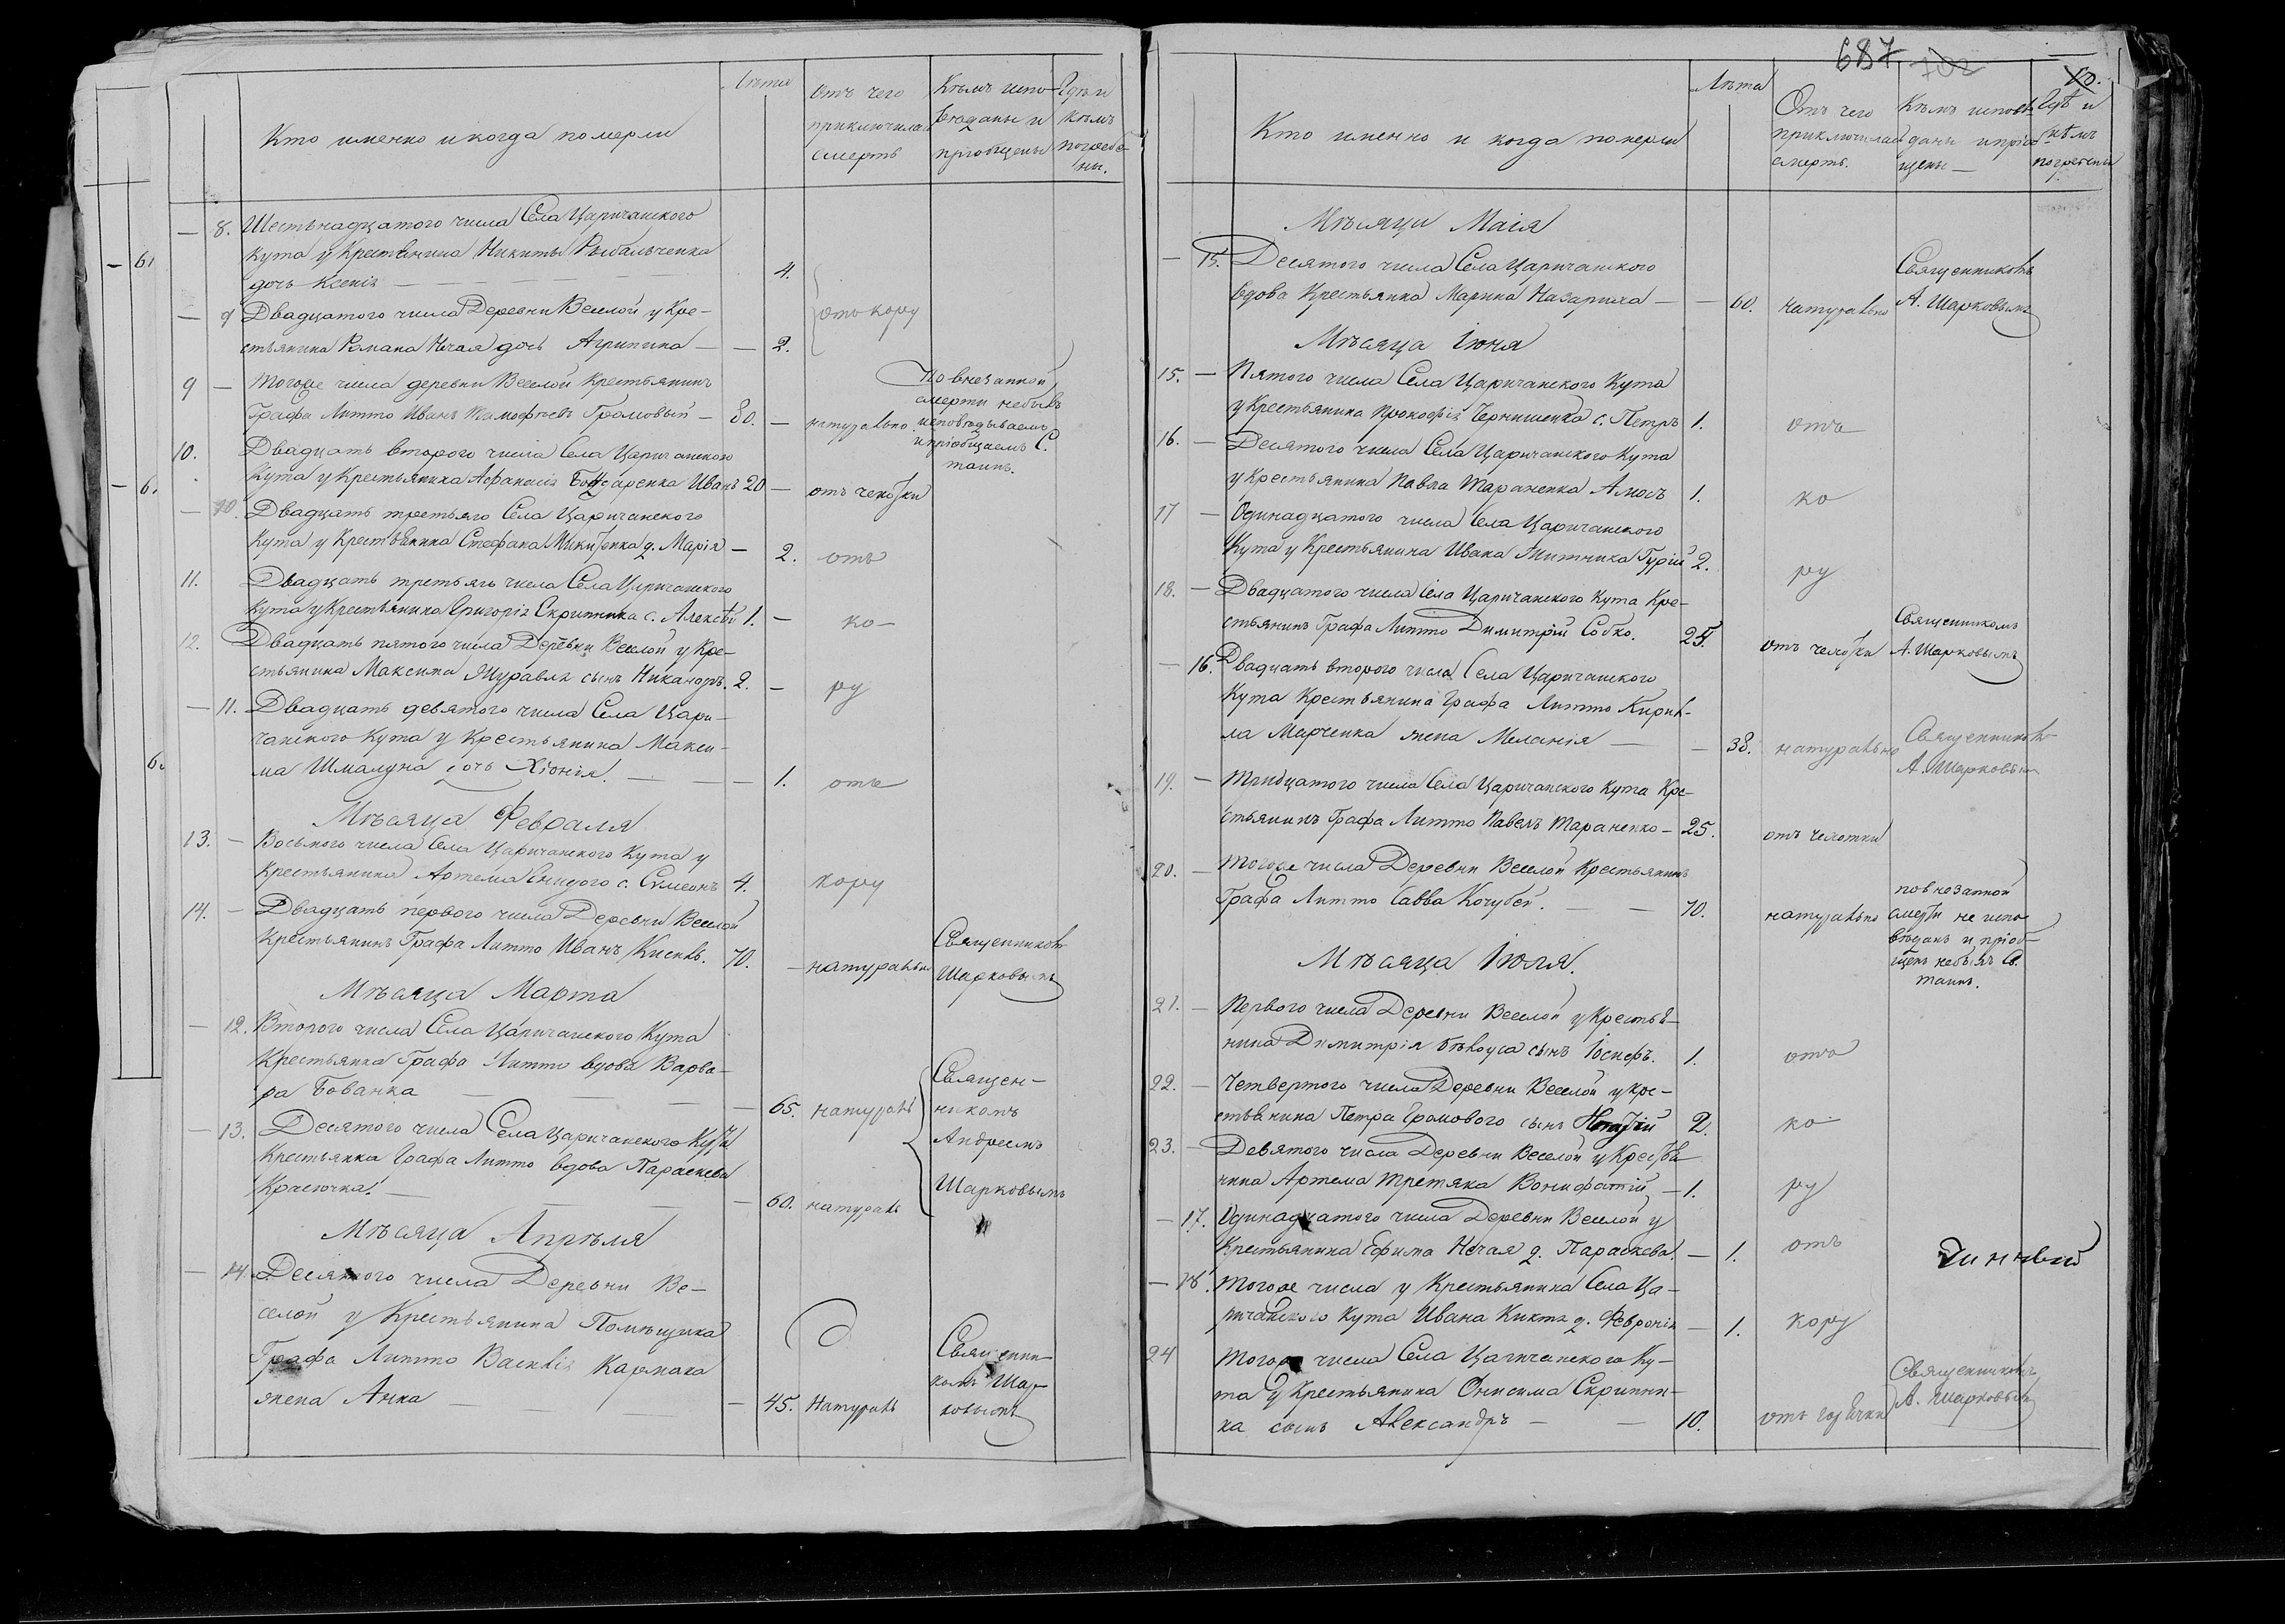 Лѣта
Кто именно и когда померли
Отъ чего
приключилась
смерть
Кѣмъ испо-
вѣданы и
пріобщены
Гдѣ и
кѣмъ
погребе-
ны.
8. Шестьнадцатого числа Села Царичанского
Кута у Крестьянина Никиты Рыбальченка
дочь Ксенія — 4.
9 Двадцатого числа Деревни Веселой у Кре-
стьянина Романа Нечая дочь Агрипина — 2.
отъ кору
9 — Тогоже числа деревни Веселой Крестьянинъ
Графа Литто Иванъ Тимофѣевъ Громовый — 80. — натурально
По внезапной
смерти небывъ
исповѣдываемъ
и пріобщаемъ С.
таинъ.
10. Двадцать второго числа Села Царичанского
Кута у Крестьянина Афанасія Бондаренка Иванъ 20 — отъ чехотки
10. Двадцать третьяго Села Царичанского
Кута у Крестьянина Стефана Микитенка д. Марія — 2. отъ
11. Двадцать третьяго числа Села Царичанского
Кута у Крестьянина Григорія Скрипника с. Алексѣй 1. — ко-
12. Двадцать пятого числа Деревни Веселой у Кре-
стьянина Максима Журавля сынъ Никаноръ. 2. — ру
11. Двадцать девятого числа Села Цари-
чанского Кута у Крестьянина Макси-
ма Шмалуна дочь Хіонія. — 1. отъ
Мѣсяца Февраля
13. — Восьмого числа Села Царичанского Кута у
Крестьянина Артема Гнидого с. Сѵмеонъ 4. кору
14. — Двадцать первого числа Деревни Веселой
Крестьянинъ Графа Литто Иванъ Кисиль. 70. — натурально
Священникомъ
Шарковымъ
Мѣсяца Марта
12. Второго числа Села Царичанского Кута
Крестьянка Графа Литто вдова Варва-
ра Бованка — 65. натураль
13. Десятого числа Села Царичанского Кута
Крестьянка Графа Литто вдова Параскева
Красючка. — 60. натураль
Священ-
никомъ
Андреемъ
Шарковымъ
Мѣсяца Апрѣля
14. Десятого числа Деревни Ве-
селой у Крестьянина Помѣщика
Графа Литто Василія Кармака
жена Анна — 45. Натураль
Священни-
комъ Шар-
ковымъ
687
702
Лѣта
Кто именно и когда померли
Отъ чего
приключилась
смерть.
Кѣмъ исповѣ-
даны и пріоб-
щены —
Гдѣ и
кѣмъ
погребены
Мѣсяца Маія
15. Десятого числа Села Царичанского
вдова Крестьянка Марина Назариха — 60. натурально
Священникомъ
А. Шарковымъ
Мѣсяца Іюня
15. — Пятого числа Села Царичанского Кута
у Крестьянина Прокофія Чернишенка с. Петръ 1. отъ
16. — Десятого числа Села Царичанского Кута
у Крестьянина Павла Тараненка Амосъ 1. ко
17 — Одинадцатого числа Села Царичанского
Кута у Крестьянина Ивана Житника Гурій 2. ру
18. — Двадцатого числа Села Царичанского Кута Кре-
стьянинъ Графа Литто Димитрій Собко. 25. отъ чехотки
Священникомъ
А. Шарковымъ
16. Двадцать второго числа Села Царичанского
Кута Крестьянина Графа Литто Кирил-
ла Марченка жена Меланія — 38. натурально
Священникомъ
А. Шарковым
19. — Тридцатого числа Села Царичанского Кута Кре-
стьянинъ Графа Литто Павелъ Тараненко — 25. отъ чехотки
20. — Тогоже числа Деревни Веселой Крестьянинъ
Графа Литто Савва Кочубей. — 70. натурально
повнезапной
смерти не испо-
вѣданъ и пріоб-
щенъ небылъ С.
таинъ.
Мѣсяца Іюля.
21. — Первого числа Деревни Веселой у Крестья-
нина Димитрія Бѣлоуса сынъ Іосифъ. 1. отъ
22. — Четвертого числа Деревни Веселой у Кре-
стьянина Петра Громового сынъ 2. ко
23. — Девятого числа Деревни Веселой у Крестья-
нина Артема Третяка Вонифатій — 1. ру
17. Одинадцатого числа Деревни Веселой у
Крестьянина Ефима Нечая д. Параскева. — 1. отъ
18. Тогоже числа у Крестьянина Села Ца-
ричанского Кута Ивана Киктя д. Февронія — 1. кору
24 Тогоже числа Села Царичанского Ку-
та у Крестьянина Онисима Скрипни-
ка сынъ Александръ — 10. отъ горячки
Священникомъ
А. Шарковым